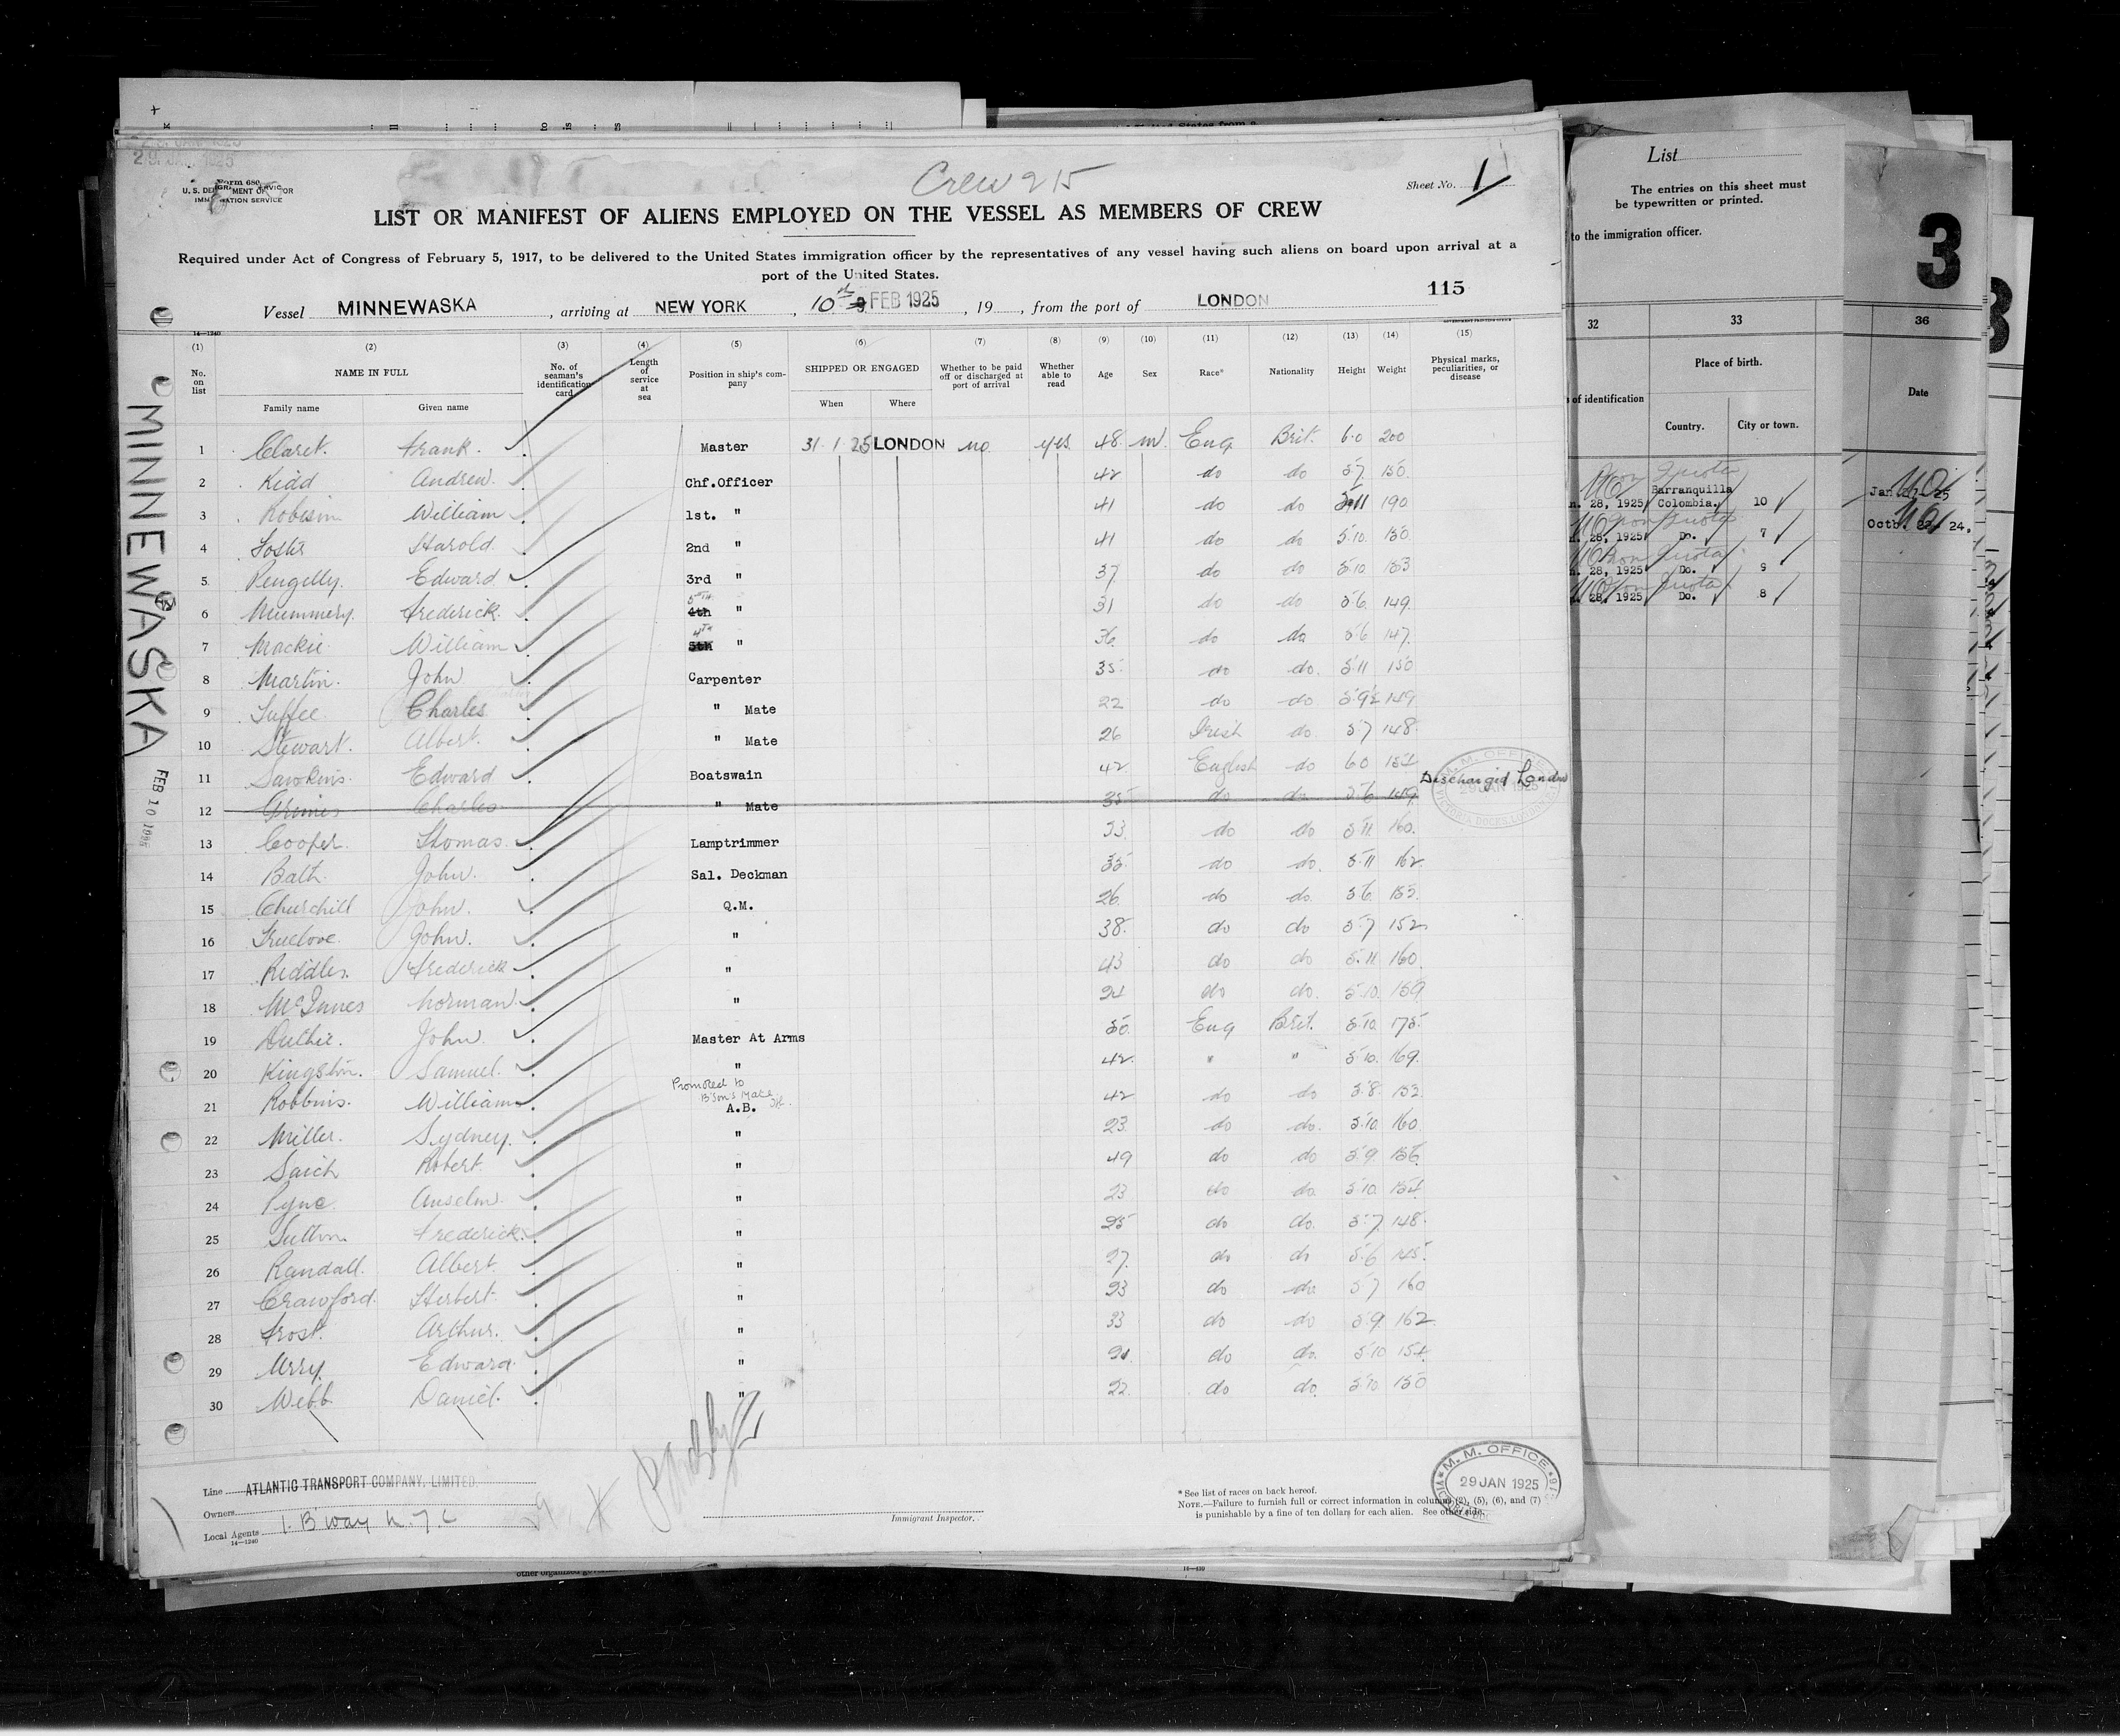 Crew 215
Sheet No. 1
Form 680
U. S. DEPARTMENT OF LABOR
IMMIGRATION SERVICE
29 JAN 1925
LIST OR MANIFEST OF ALIENS EMPLOYED ON THE VESSEL AS MEMBERS OF CREW
Required under Act of Congress of February 5, 1917, to be delivered to the United States immigration officer by the representatives of any vessel having such aliens on board upon arrival at a
port of the United States.
115
Vessel MINNEWASKA, arriving at NEW YORK, 10th FEB 1925, 19, from the port of LONDON
14—1240
(1) (2) (3) (4) (5) (6) (7) (8) (9) (10) (11) (12) (13) (14) (15)
No. on list NAME IN FULL No. of seaman's identification card Length of service at sea Position in ship's company SHIPPED OR ENGAGED Whether to be paid off or discharged at port of arrival Whether able to read Age Sex Race* Nationality Height Weight Physical marks, peculiarities, or disease
Family name Given name When Where
1 Claret. Frank. Master 31.1.25 LONDON no. yes. 48 m. Eng Brit. 6.0 200
2 Kidd Andrew. Chf.Officer 42 do do 5.7. 150.
3 Robison William 1st. " 41 do do 5.11 190
4 Foster Harold. 2nd " 41 do do 5.10. 150.
5. Pengelly. Edward 3rd " 37. do do 5.10. 153
6 Mummery. Frederick. 5th 4th " 31 do do 5.6. 149.
7 Mackie William 4th 5th " 36. do do 5.6 147.
8 Martin. John Carpenter 35. do do. 5.11 150
9 Tuffee Charles " Mate 22 do do 5.9½ 149
10 Stewart. Albert. " Mate 26 Irish do 5.7 148.
11 Sawkins. Edward Boatswain 42. English do 6.0 154
12 Grimes Charles " Mate 35 do do 5.6 149 Discharged London
13 Cooper. Thomas. Lamptrimmer 33. do do 5.11. 160.
14 Bath. John. Sal. Deckman 35. do do. 5.11 162
15 Churchill John. Q.M. 26. do do. 5.6. 152.
16 Truelove. John. " 38. do do 5.7 152.
17 Riddles. Frederick " 43 do do 5.11 160.
18 McInnes Norman. " 24 do do. 5.10. 159.
19 Duthie. John. Master At Arms 50. Eng Brit. 5.10. 175.
20 Kingston. Samuel. " 42. " " 5.10. 169.
Promoted to
B'sons Mate
21 Robbins. William A.B. 42 do do 5.8. 153.
22 Miller. Sydney. " 23. do do. 5.10. 160.
23 Saich Robert. " 49 do do 5.9. 156.
24 Pyne Anselm. " 23 do do. 5.10. 154.
25 Sutton. Frederick. " 25 do do. 5.7. 148.
26 Randall. Albert. " 27. do do 5.6 145.
27 Crawford. Herbert. " 23 do do. 5.7 160
28 Frost. Arthur. " 33 do do 5.9. 162.
29 Urry. Edward. " do do. 5.10 154.
30 Webb. Daniel. " 22. do do. 5.10. 150
MINNEWASKA
FEB 10 1925
M. M. OFFICE
29 JAN 1925
VICTORIA DOCKS, LONDON
Line ATLANTIC TRANSPORT COMPANY, LIMITED.
Owners
Local Agents 1. B'way N.Y.C
14—1240
Immigrant Inspector.
* See list of races on back hereof.
NOTE.—Failure to furnish full or correct information in columns (2), (5), (6), and (7)
is punishable by a fine of ten dollars for each alien. See other side.
M. M. OFFICE
29 JAN 1925
List
The entries on this sheet must
be typewritten or printed.
to the immigration officer.
3
32 33 36
Place of birth. Date
of identification
Country. City or town.
Non Quota
Barranquilla
28, 1925 Colombia. 10
Non Quota
28, 1925 Do. 7
Non Quota
28, 1925 Do. 9
Non Quota
28, 1925 Do. 8
Octb. 22 24.